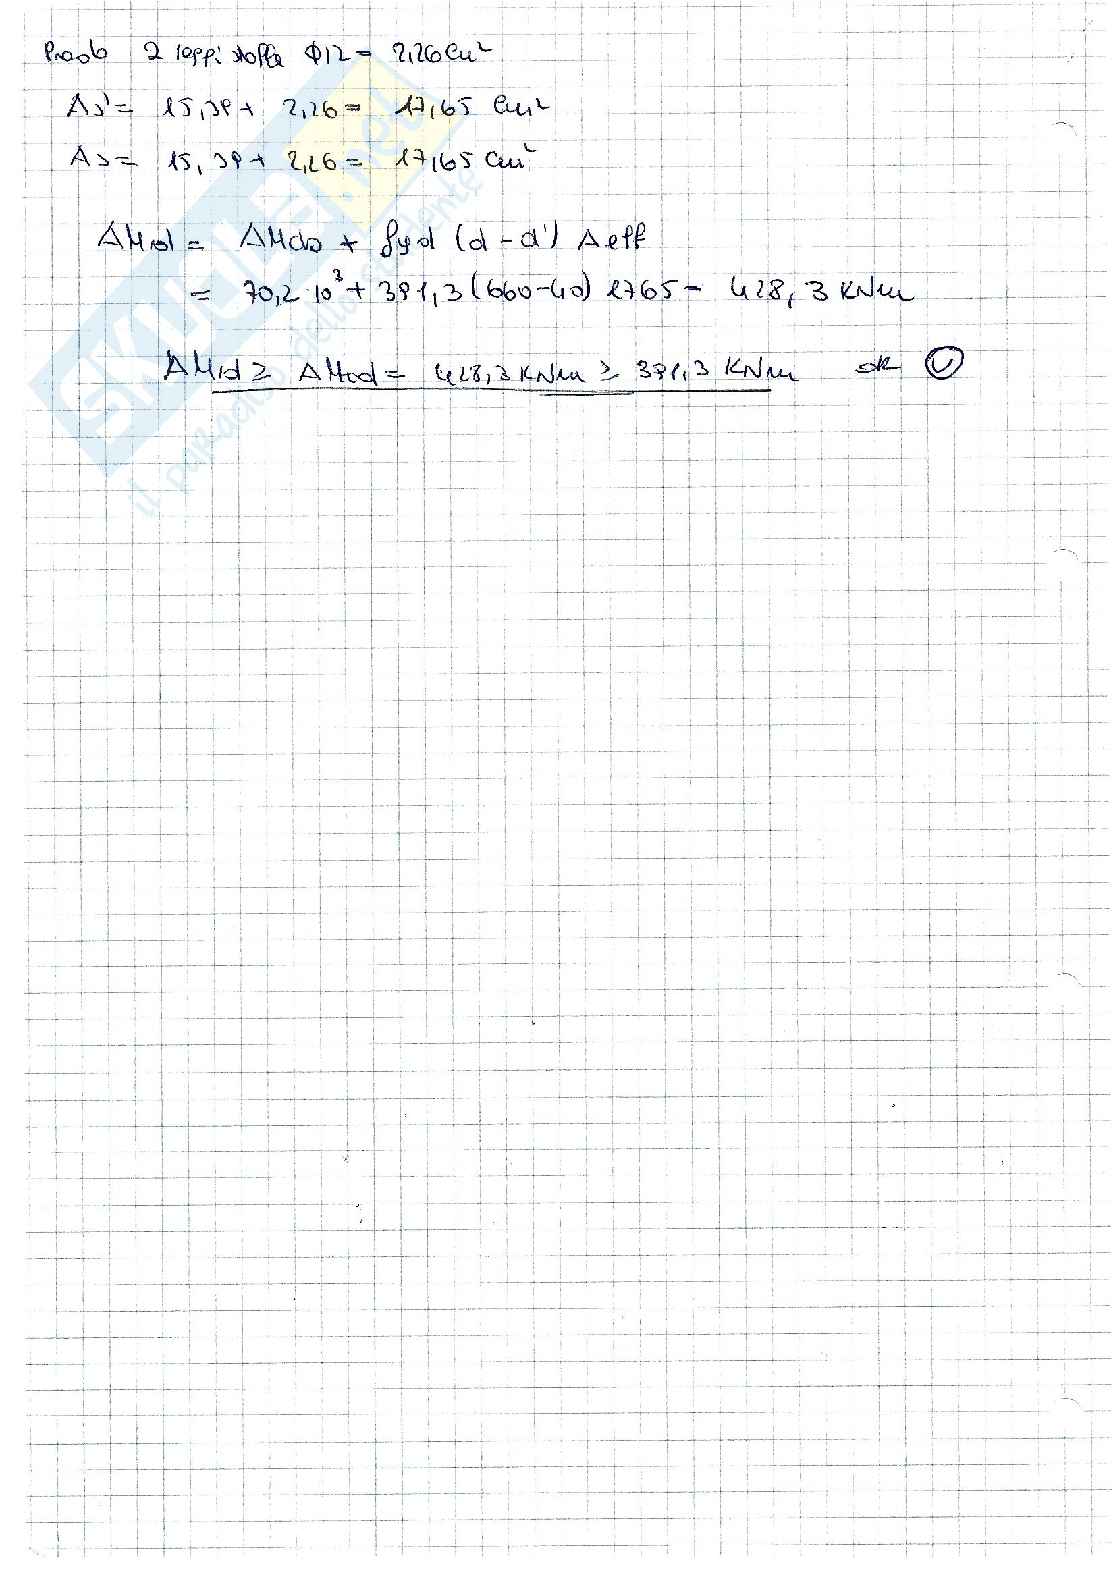 Prendo 2 reggi staffe Φ12 = 2,26 cm²
As' = 15,39 + 2,26 = 17,65 cm²
As = 15,39 + 2,26 = 17,65 cm²
ΔMrd = ΔMdo + fyd (d - d') Aeff
= 70,2·10³ + 391,3 (660-40) 1765 = 428,3 KNm
ΔMrd ≥ ΔMed = 428,3 KNm ≥ 391,3 KNm ok
SKUOLA.net
il paradiso dello studente